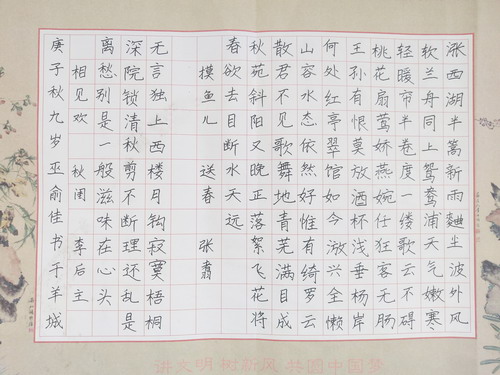 涨西湖半篙新雨麯尘波外风
软兰舟同上鸳鸯浦天气嫩寒
轻暖帘半卷度一缕歌云不碍
桃花扇莺娇燕婉任狂客无肠
王孙有恨莫放酒杯浅垂杨岸
何处红亭翠馆如今游兴全懒
山容水态依然好惟有绮罗云
散君不见歌舞地青芜满目成
秋苑斜阳又晚正落絮飞花将
春欲去目断水天远
摸鱼儿 送春 张翥
无言独上西楼月钩寂寞梧桐
深院锁清秋剪不断理还乱是
离愁别是一般滋味在心头
相见欢 秋闺 李后主
庚子秋九岁巫俞佳书于羊城
讲文明树新风 共圆中国梦